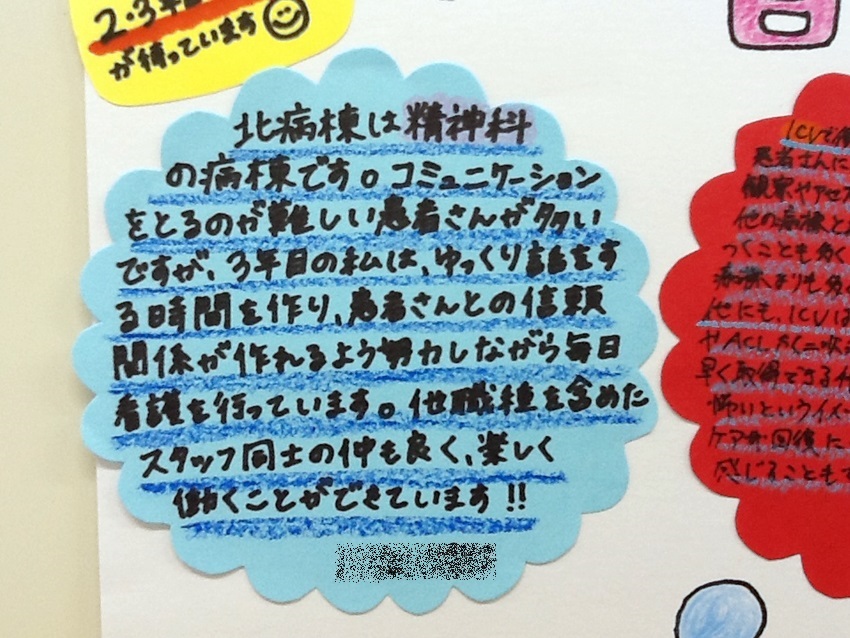 2・3年
が待っています
北病棟は精神科
の病棟です。コミュニケーション
をとるのが難しい患者さんが多い
ですが、3年目の私は、ゆっくり話をす
る時間を作り、患者さんとの信頼
関係が作れるよう努力しながら毎日
看護を行っています。他職種を含めた
スタッフ同士の仲も良く、楽しく
働くことができています!!
ICUで
患者さんに
観察やアセス
他の病棟と
つくことも多く
他にも、ICUは
早く取得できる
怖いというイメー
感じることも